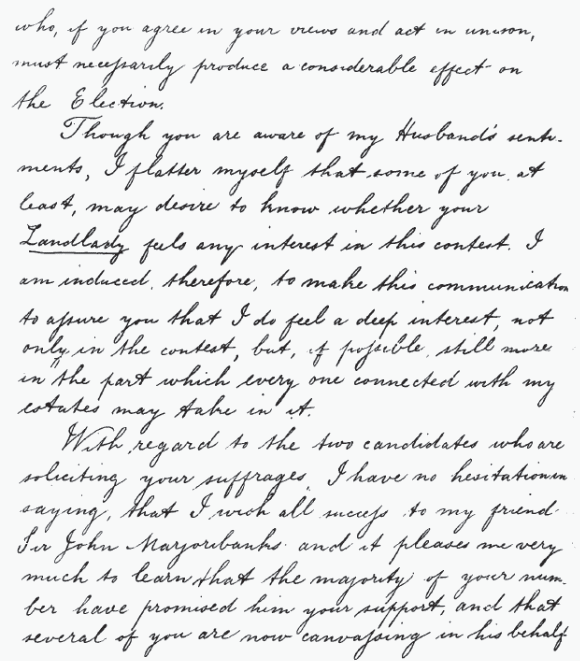 who, if you agree in your views and act in unison,
must neceſsarily produce a considerable effect on
the Election.
Though you are aware of my Husband's senti-
ments, I flatter myself that some of you at
least, may desire to know whether your
Landlady feels any interest in this contest. I
am induced, therefore, to make this communication
to aſsure you that I do feel a deep interest, not
only in the contest, but, if poſsible, still more
in the part which every one connected with my
estates may take in it.
With regard to the two candidates who are
soliciting your suffrages, I have no hesitation in
saying, that I wish all succeſs to my friend
Sir John Marjoribanks and it pleases me very
much to learn that the majority of your num-
ber have promised him your support, and that
several of you are now canvaſsing in his behalf